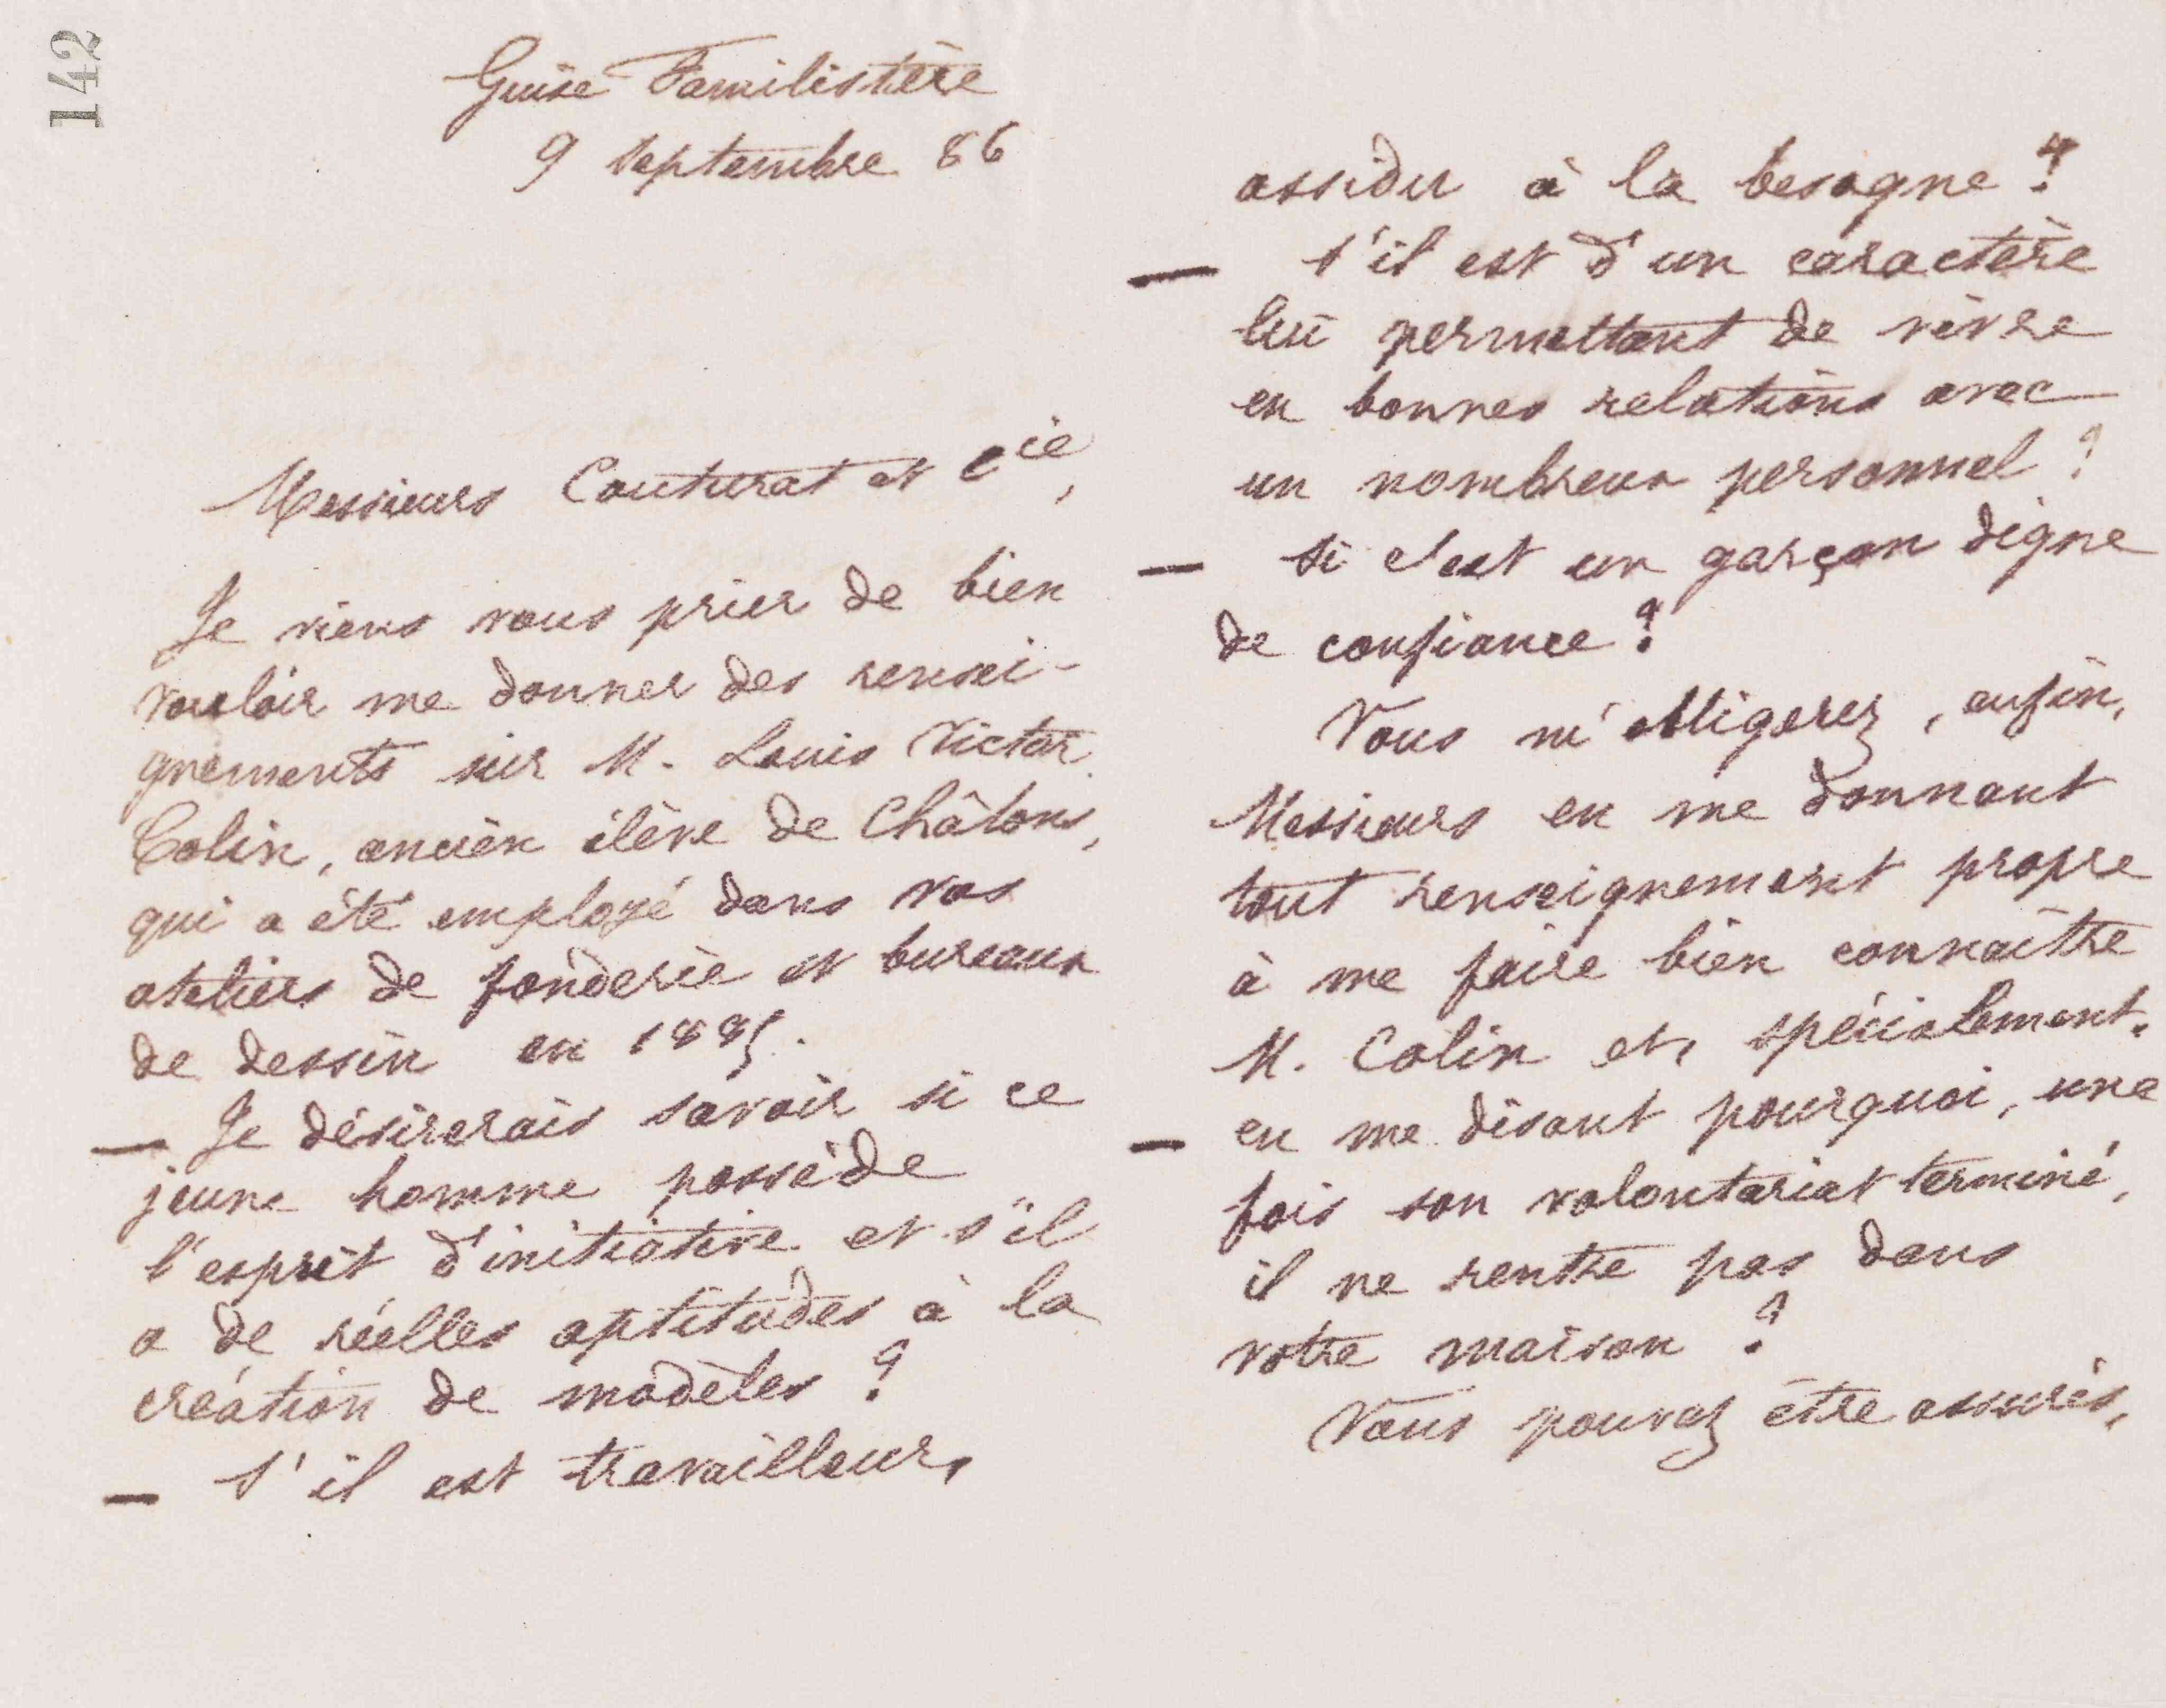 142
Guise Familistère
9 septembre 86
Messieurs Couturat et Cie,
Je viens vous prier de bien
vouloir me donner des rensei-
gnements sur M. Louis Victor
Colin, ancien élève de Châlons,
qui a été employé dans vos
ateliers de fonderie et bureaux
de dessin en 1885.
— Je désirerais savoir si ce
jeune homme possède
l'esprit d'initiative et s'il
a de réelles aptitudes à la
création de modèles ?
— S'il est travailleur,
assidu à la besogne ?
— S'il est d'un caractère
lui permettant de vivre
en bonnes relations avec
un nombreux personnel ?
— Si c'est un garçon digne
de confiance ?
Vous m'obligerez, enfin,
Messieurs en me donnant
tout renseignement propre
à me faire bien connaître
M. Colin et, spécialement,
— en me disant pourquoi, une
fois son volontariat terminé,
il ne rentre pas dans
votre maison ?
Vous pouvez être assurés,